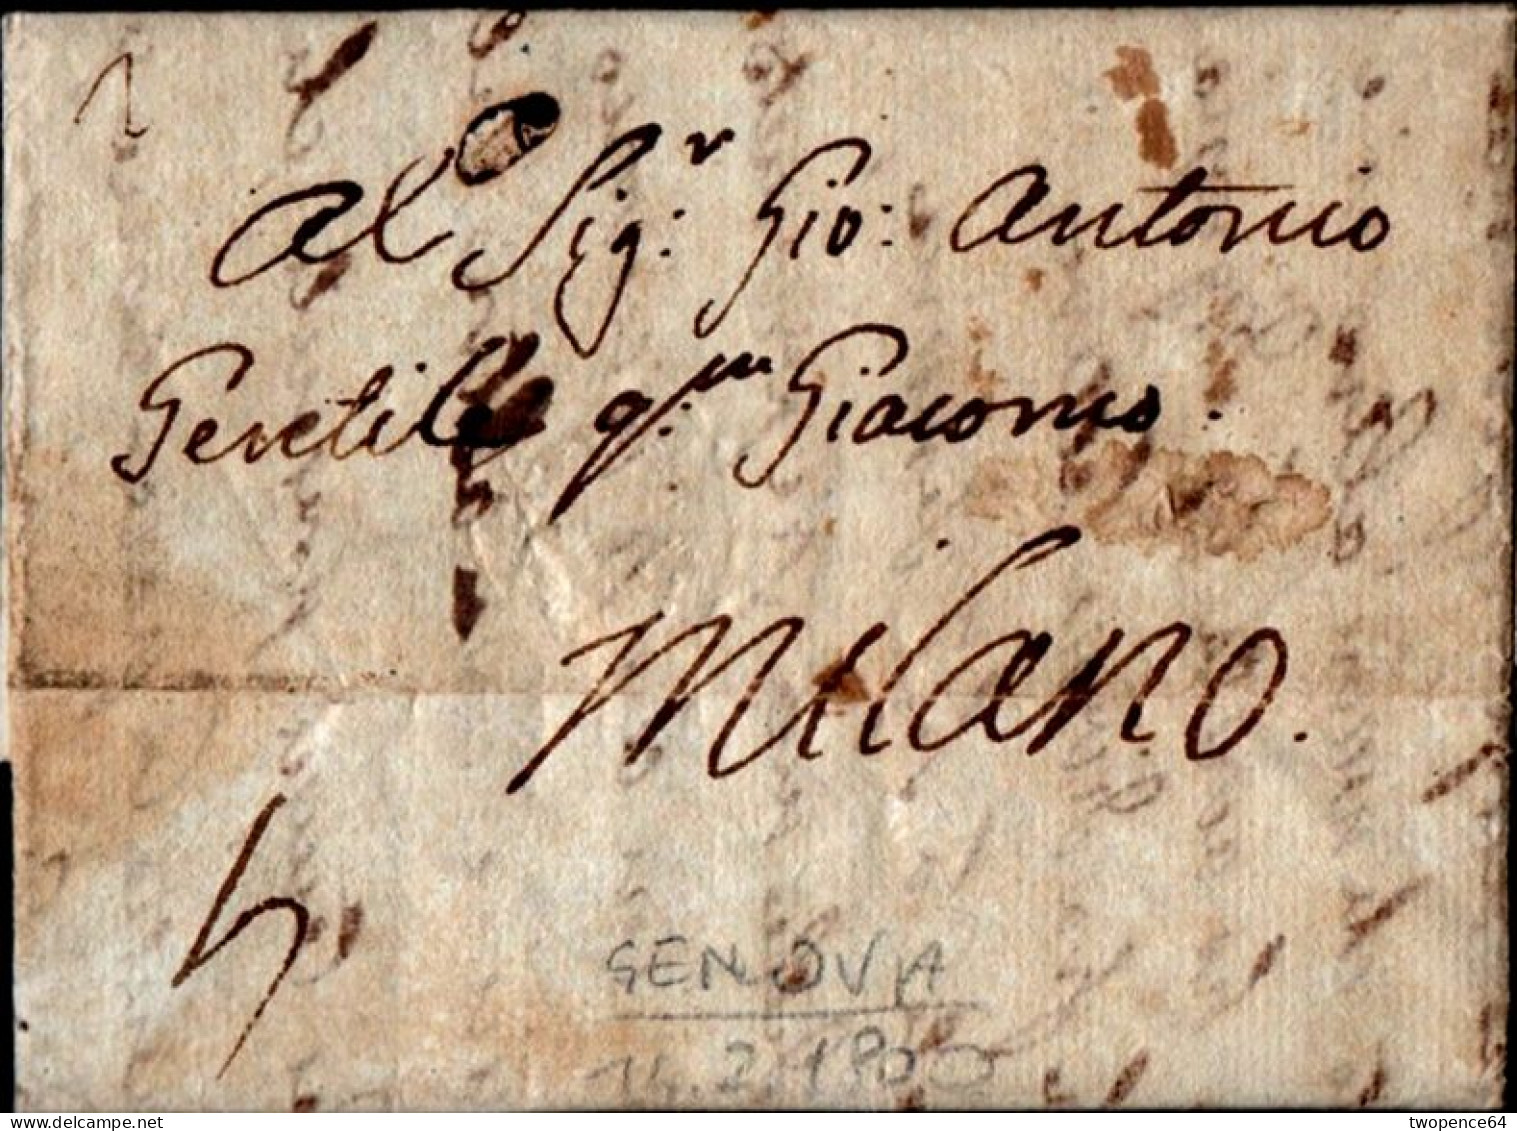 Al Sig:r Gio: Antonio
Gentile q:m Giacomo.
Milano.
GENOVA
14.2.1800
delcampe.net
twopence64